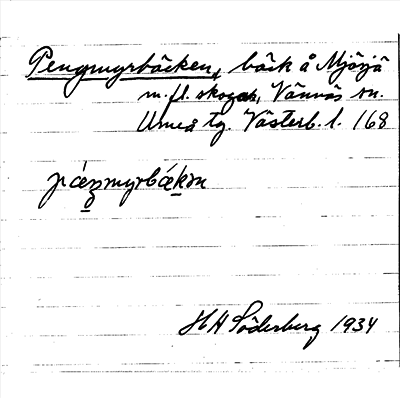 Pengmyrbäcken, bäck å Mjösjö
m.fl. skogar, Vännäs sn.
Umeå tg. Västerb. l. 168
HH Söderberg 1934